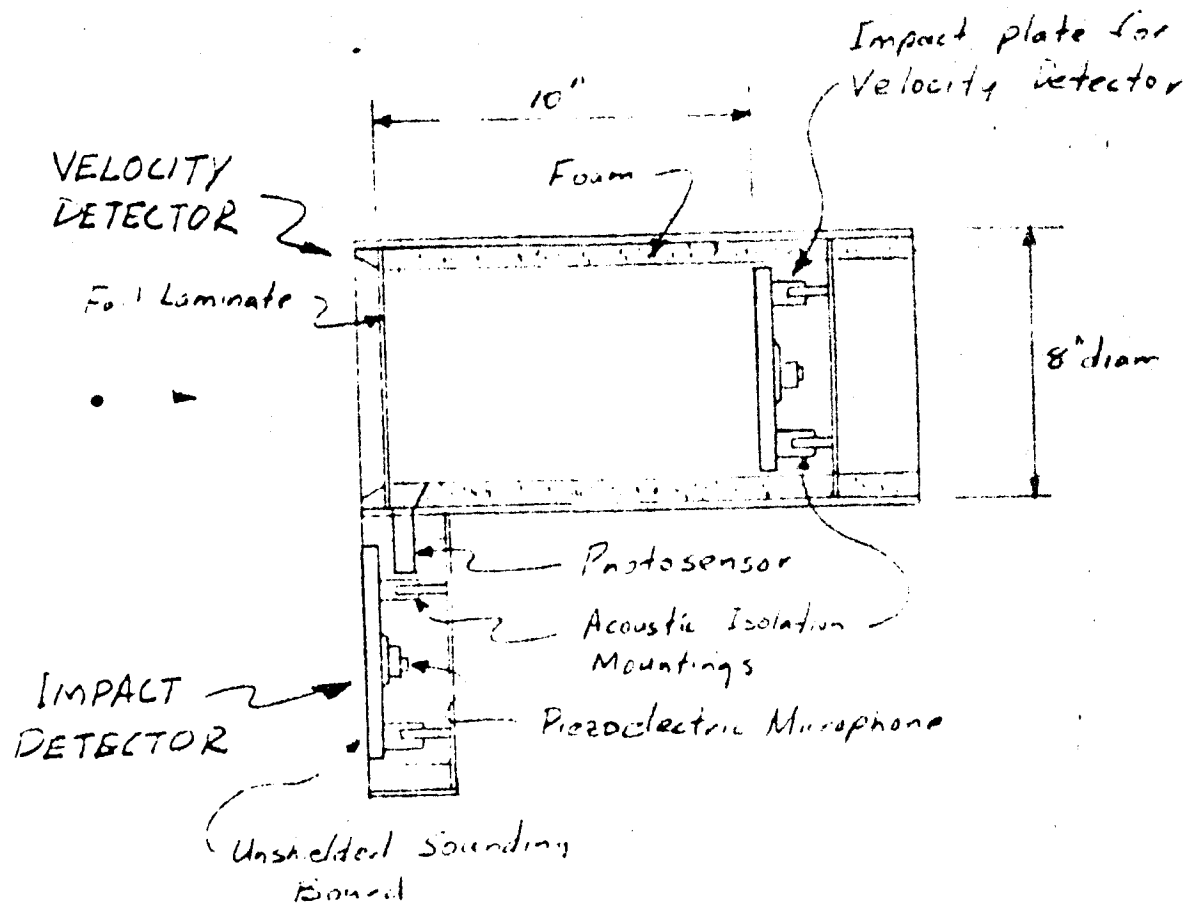 Impact plate for
Velocity Detector
10"
VELOCITY
DETECTOR
Foam
Foil Laminate
8" diam
Photosensor
Acoustic Isolation
Mountings
IMPACT
DETECTOR
Piezoelectric Microphone
Unshielded Sounding
Board